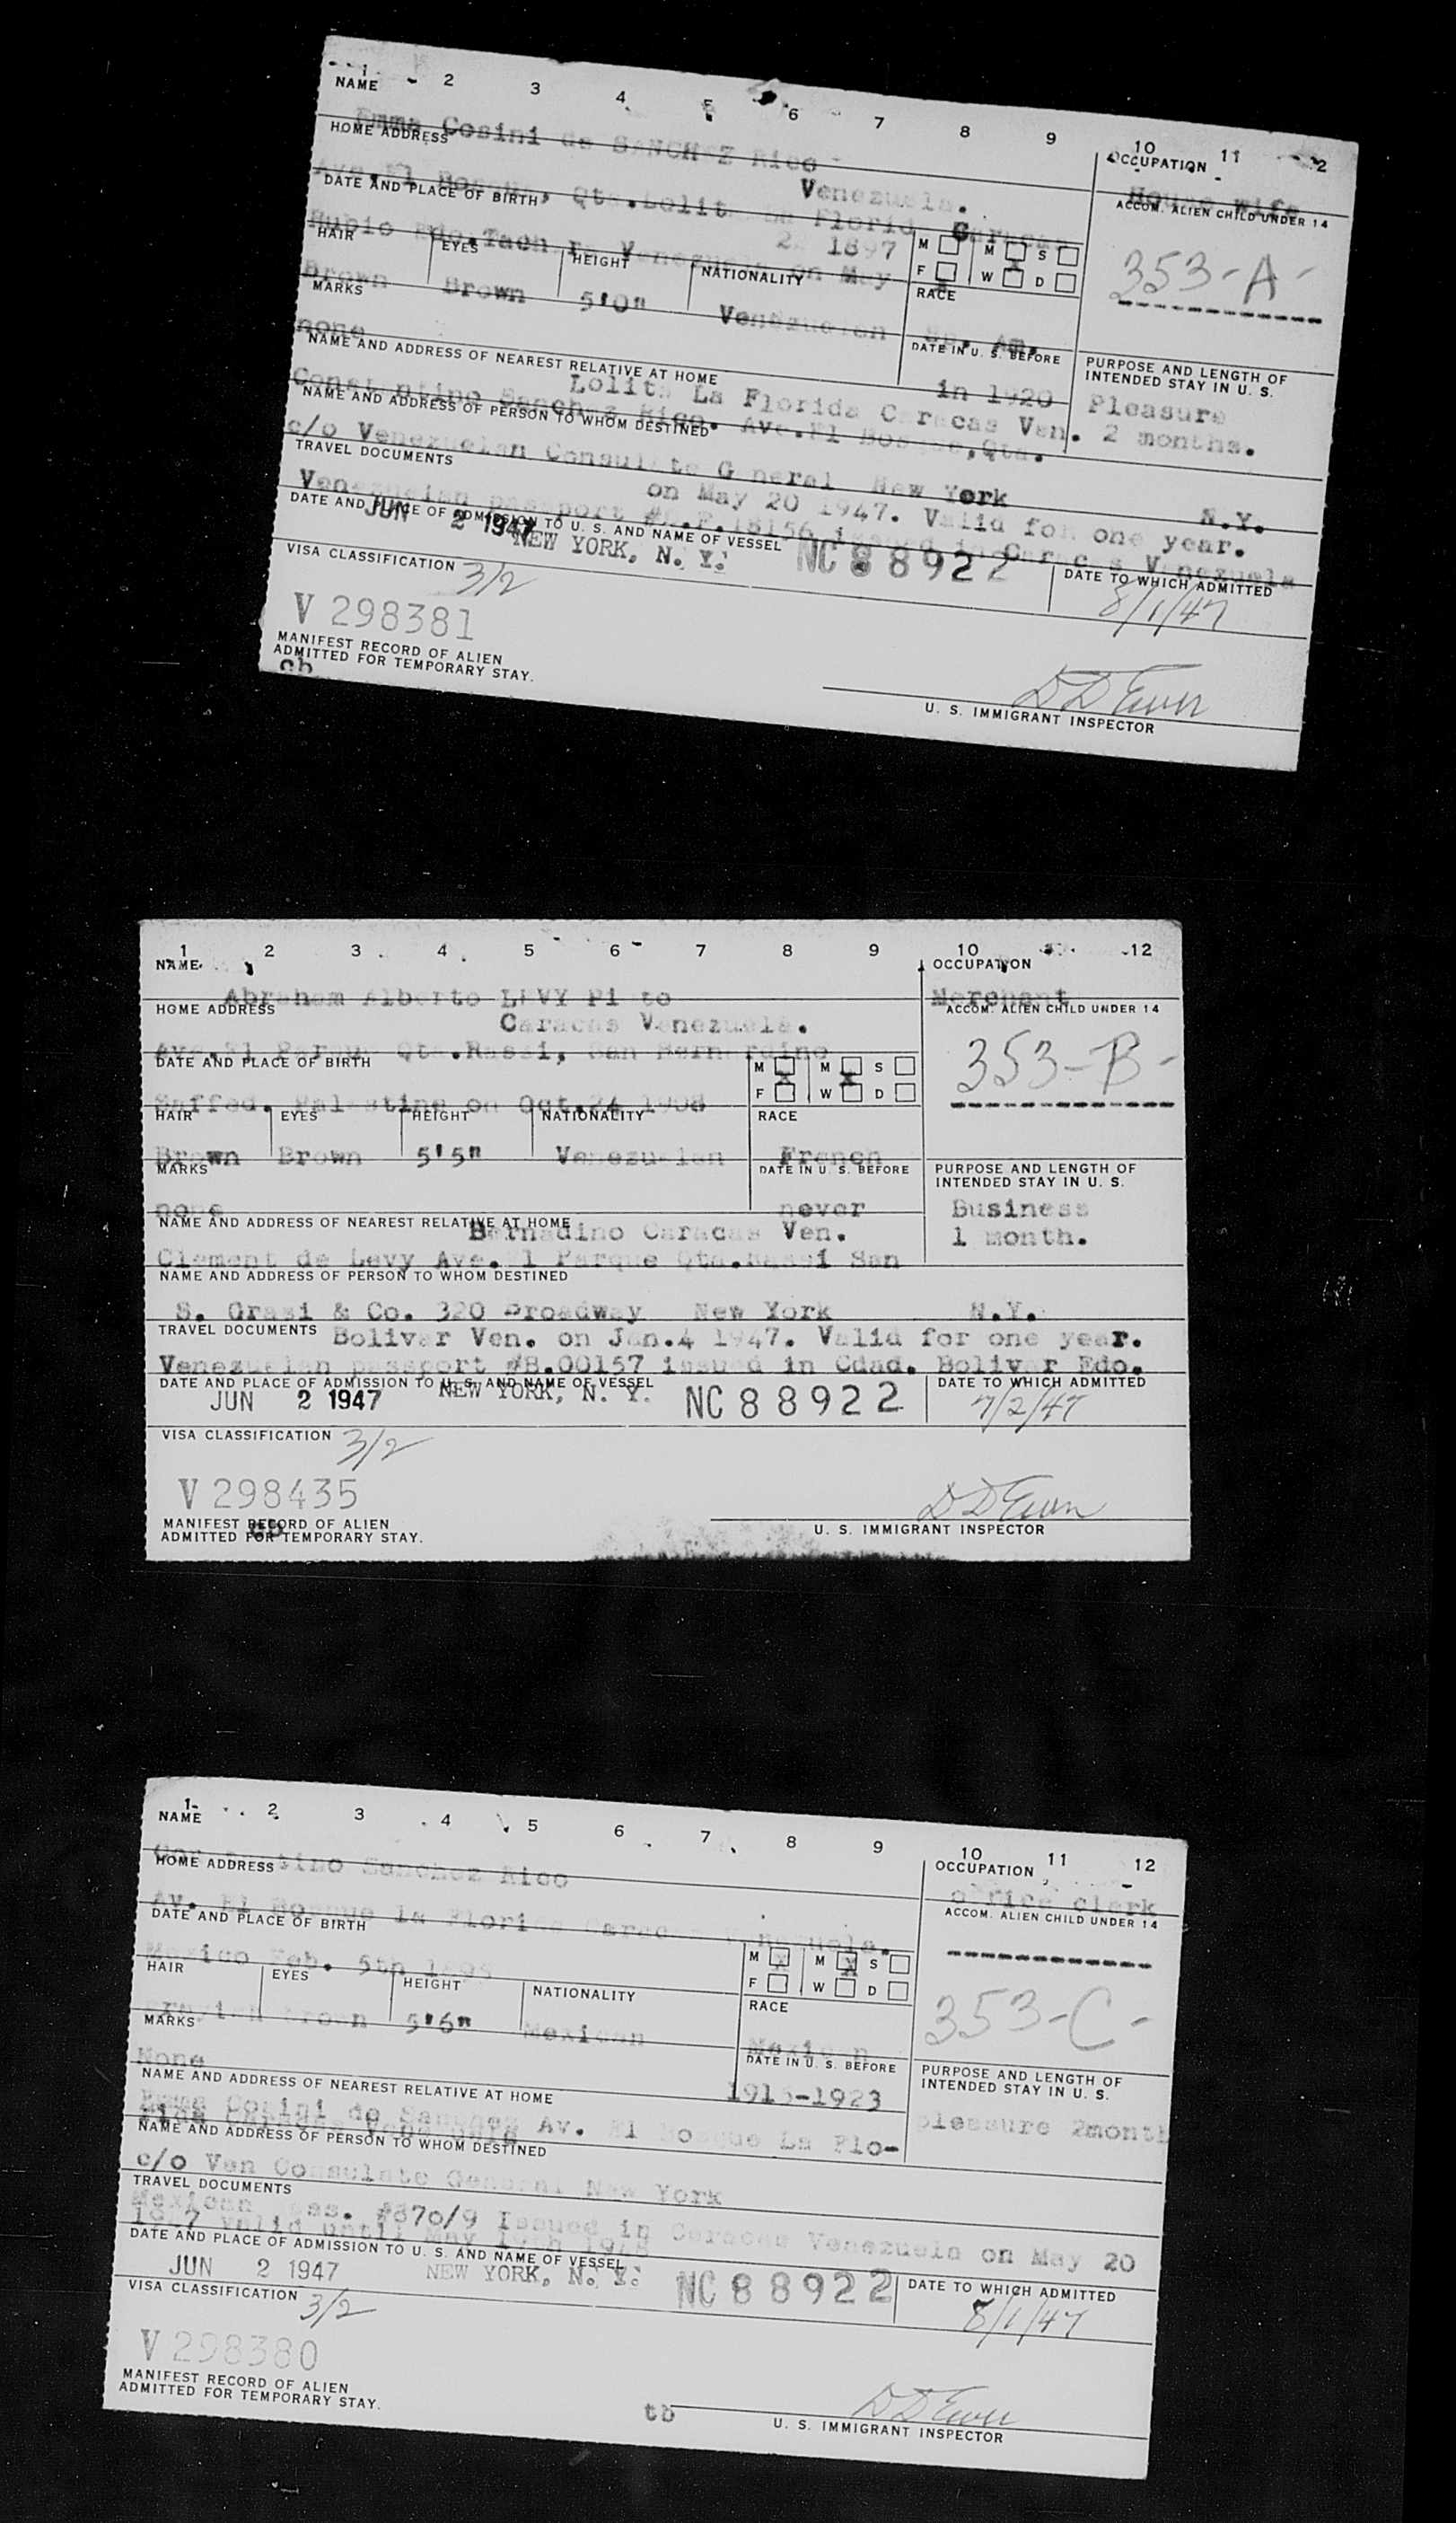 1 2 3 4 5 6 7 8 9 10 11 12
NAME
OCCUPATION
Emma Cosini de SANCHEZ Rico
House wife
HOME ADDRESS
ACCOM. ALIEN CHILD UNDER 14
Venezuela.
Ave.El Bosque, Qta.Lolita La Florida Caracas
353-A-
DATE AND PLACE OF BIRTH
2 1897
M M S
Rubio Edo.Tachira Venezuela on May
F W D
HAIR EYES HEIGHT NATIONALITY RACE
Brown Brown 5'0" Venezuelan Sp. Am.
MARKS
DATE IN U. S. BEFORE
PURPOSE AND LENGTH OF
INTENDED STAY IN U. S.
none
in 1920
Pleasure
2 months.
NAME AND ADDRESS OF NEAREST RELATIVE AT HOME
Lolita La Florida Caracas Ven.
Constantino Sanchez Rico. Ave.El Bosque,Qta.
NAME AND ADDRESS OF PERSON TO WHOM DESTINED
c/o Venezuelan Consulate General New York N.Y.
TRAVEL DOCUMENTS
on May 20 1947. Valid for one year.
Venezuelan passport #E.F.18156 issued in Caracas Venezuela
DATE AND PLACE OF ADMISSION TO U. S. AND NAME OF VESSEL
DATE TO WHICH ADMITTED
JUN 2 1947 NEW YORK, N. Y. NC 88922
8/1/47
VISA CLASSIFICATION 3/2
V 298381
MANIFEST RECORD OF ALIEN
ADMITTED FOR TEMPORARY STAY.
cb
D D Ewen
U. S. IMMIGRANT INSPECTOR
1 2 3 4 5 6 7 8 9 10 12
NAME
OCCUPATION
Abraham Alberto LEVY Pinto
Merchant
HOME ADDRESS
ACCOM. ALIEN CHILD UNDER 14
Caracas Venezuela.
Ave.El Parque Qta.Rassi, San Bernardino
353-B-
DATE AND PLACE OF BIRTH
M M S
F W D
Saffed. Palestine on Oct.24 1908
HAIR EYES HEIGHT NATIONALITY RACE
Brown Brown 5'5" Venezuelan French
MARKS
DATE IN U. S. BEFORE
PURPOSE AND LENGTH OF
INTENDED STAY IN U. S.
none
never
Business
1 month.
NAME AND ADDRESS OF NEAREST RELATIVE AT HOME
Bernadino Caracas Ven.
Clement de Levy Ave.El Parque Qta.Rassi San
NAME AND ADDRESS OF PERSON TO WHOM DESTINED
S. Grasi & Co. 320 Broadway New York N.Y.
TRAVEL DOCUMENTS
Bolivar Ven. on Jan.4 1947. Valid for one year.
Venezuelan passport #B.00157 issued in Cdad. Bolivar Edo.
DATE AND PLACE OF ADMISSION TO U. S. AND NAME OF VESSEL
DATE TO WHICH ADMITTED
JUN 2 1947 NEW YORK, N. Y. NC 88922
7/2/47
VISA CLASSIFICATION 3/2
V 298435
MANIFEST RECORD OF ALIEN
ADMITTED FOR TEMPORARY STAY.
cb
D D Ewen
U. S. IMMIGRANT INSPECTOR
1 2 3 4 5 6 7 8 9 10 11 12
NAME
OCCUPATION
Constantino Sanchez Rico
office clerk
HOME ADDRESS
ACCOM. ALIEN CHILD UNDER 14
Av. El Bosque la Florida Caracas Venezuela.
DATE AND PLACE OF BIRTH
M M S
F W D
Mexico Feb. 5th
353-C-
HAIR EYES HEIGHT NATIONALITY RACE
Grayish brown 5'6" Mexican Mexican
MARKS
DATE IN U. S. BEFORE
PURPOSE AND LENGTH OF
INTENDED STAY IN U. S.
None
-1923
pleasure 2month
NAME AND ADDRESS OF NEAREST RELATIVE AT HOME
Emma Cosini de Sanchez Av. El Bosque La Flo-
rida Caracas Venezuela
NAME AND ADDRESS OF PERSON TO WHOM DESTINED
c/o Ven Consulate General New York
TRAVEL DOCUMENTS
Mexican Pass. #870/9 Issued in Caracas Venezuela on May 20
1947 valid until May 19th 1948
DATE AND PLACE OF ADMISSION TO U. S. AND NAME OF VESSEL
DATE TO WHICH ADMITTED
JUN 2 1947 NEW YORK, N. Y. NC 88922
8/1/47
VISA CLASSIFICATION 3/2
V 298380
MANIFEST RECORD OF ALIEN
ADMITTED FOR TEMPORARY STAY.
tb
D D Ewen
U. S. IMMIGRANT INSPECTOR